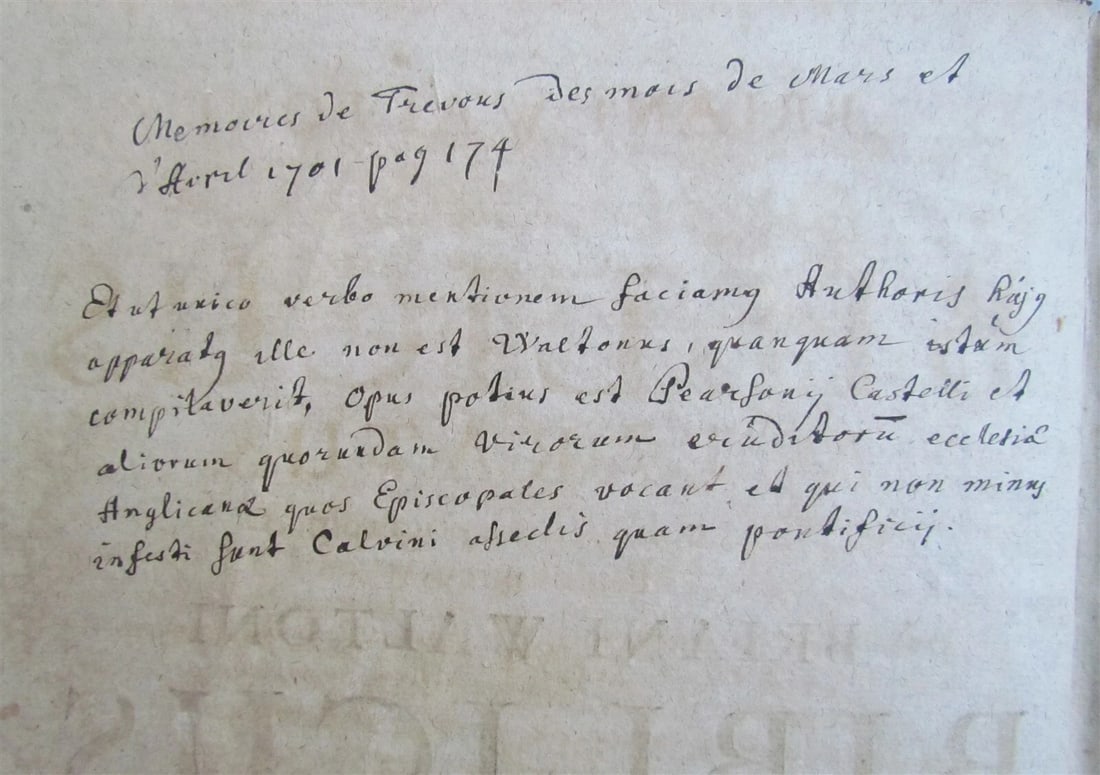 Memoires de Trevous des mois de Mars et
d'Avril 1701 pag 174
Et ut unico verbo mentionem faciamꝰ Authoris hujꝰ
apparatꝰ ille non est Waltonus, quanquam istum
compilaverit, Opus potius est Pearsonij Castelli et
aliorum quorundam Virorum eruditorū ecclesiæ
Anglicanæ quos Episcopales vocant et qui non minus
infesti sunt Calvini asseclis quam pontificij.
BRIANI WALTONI